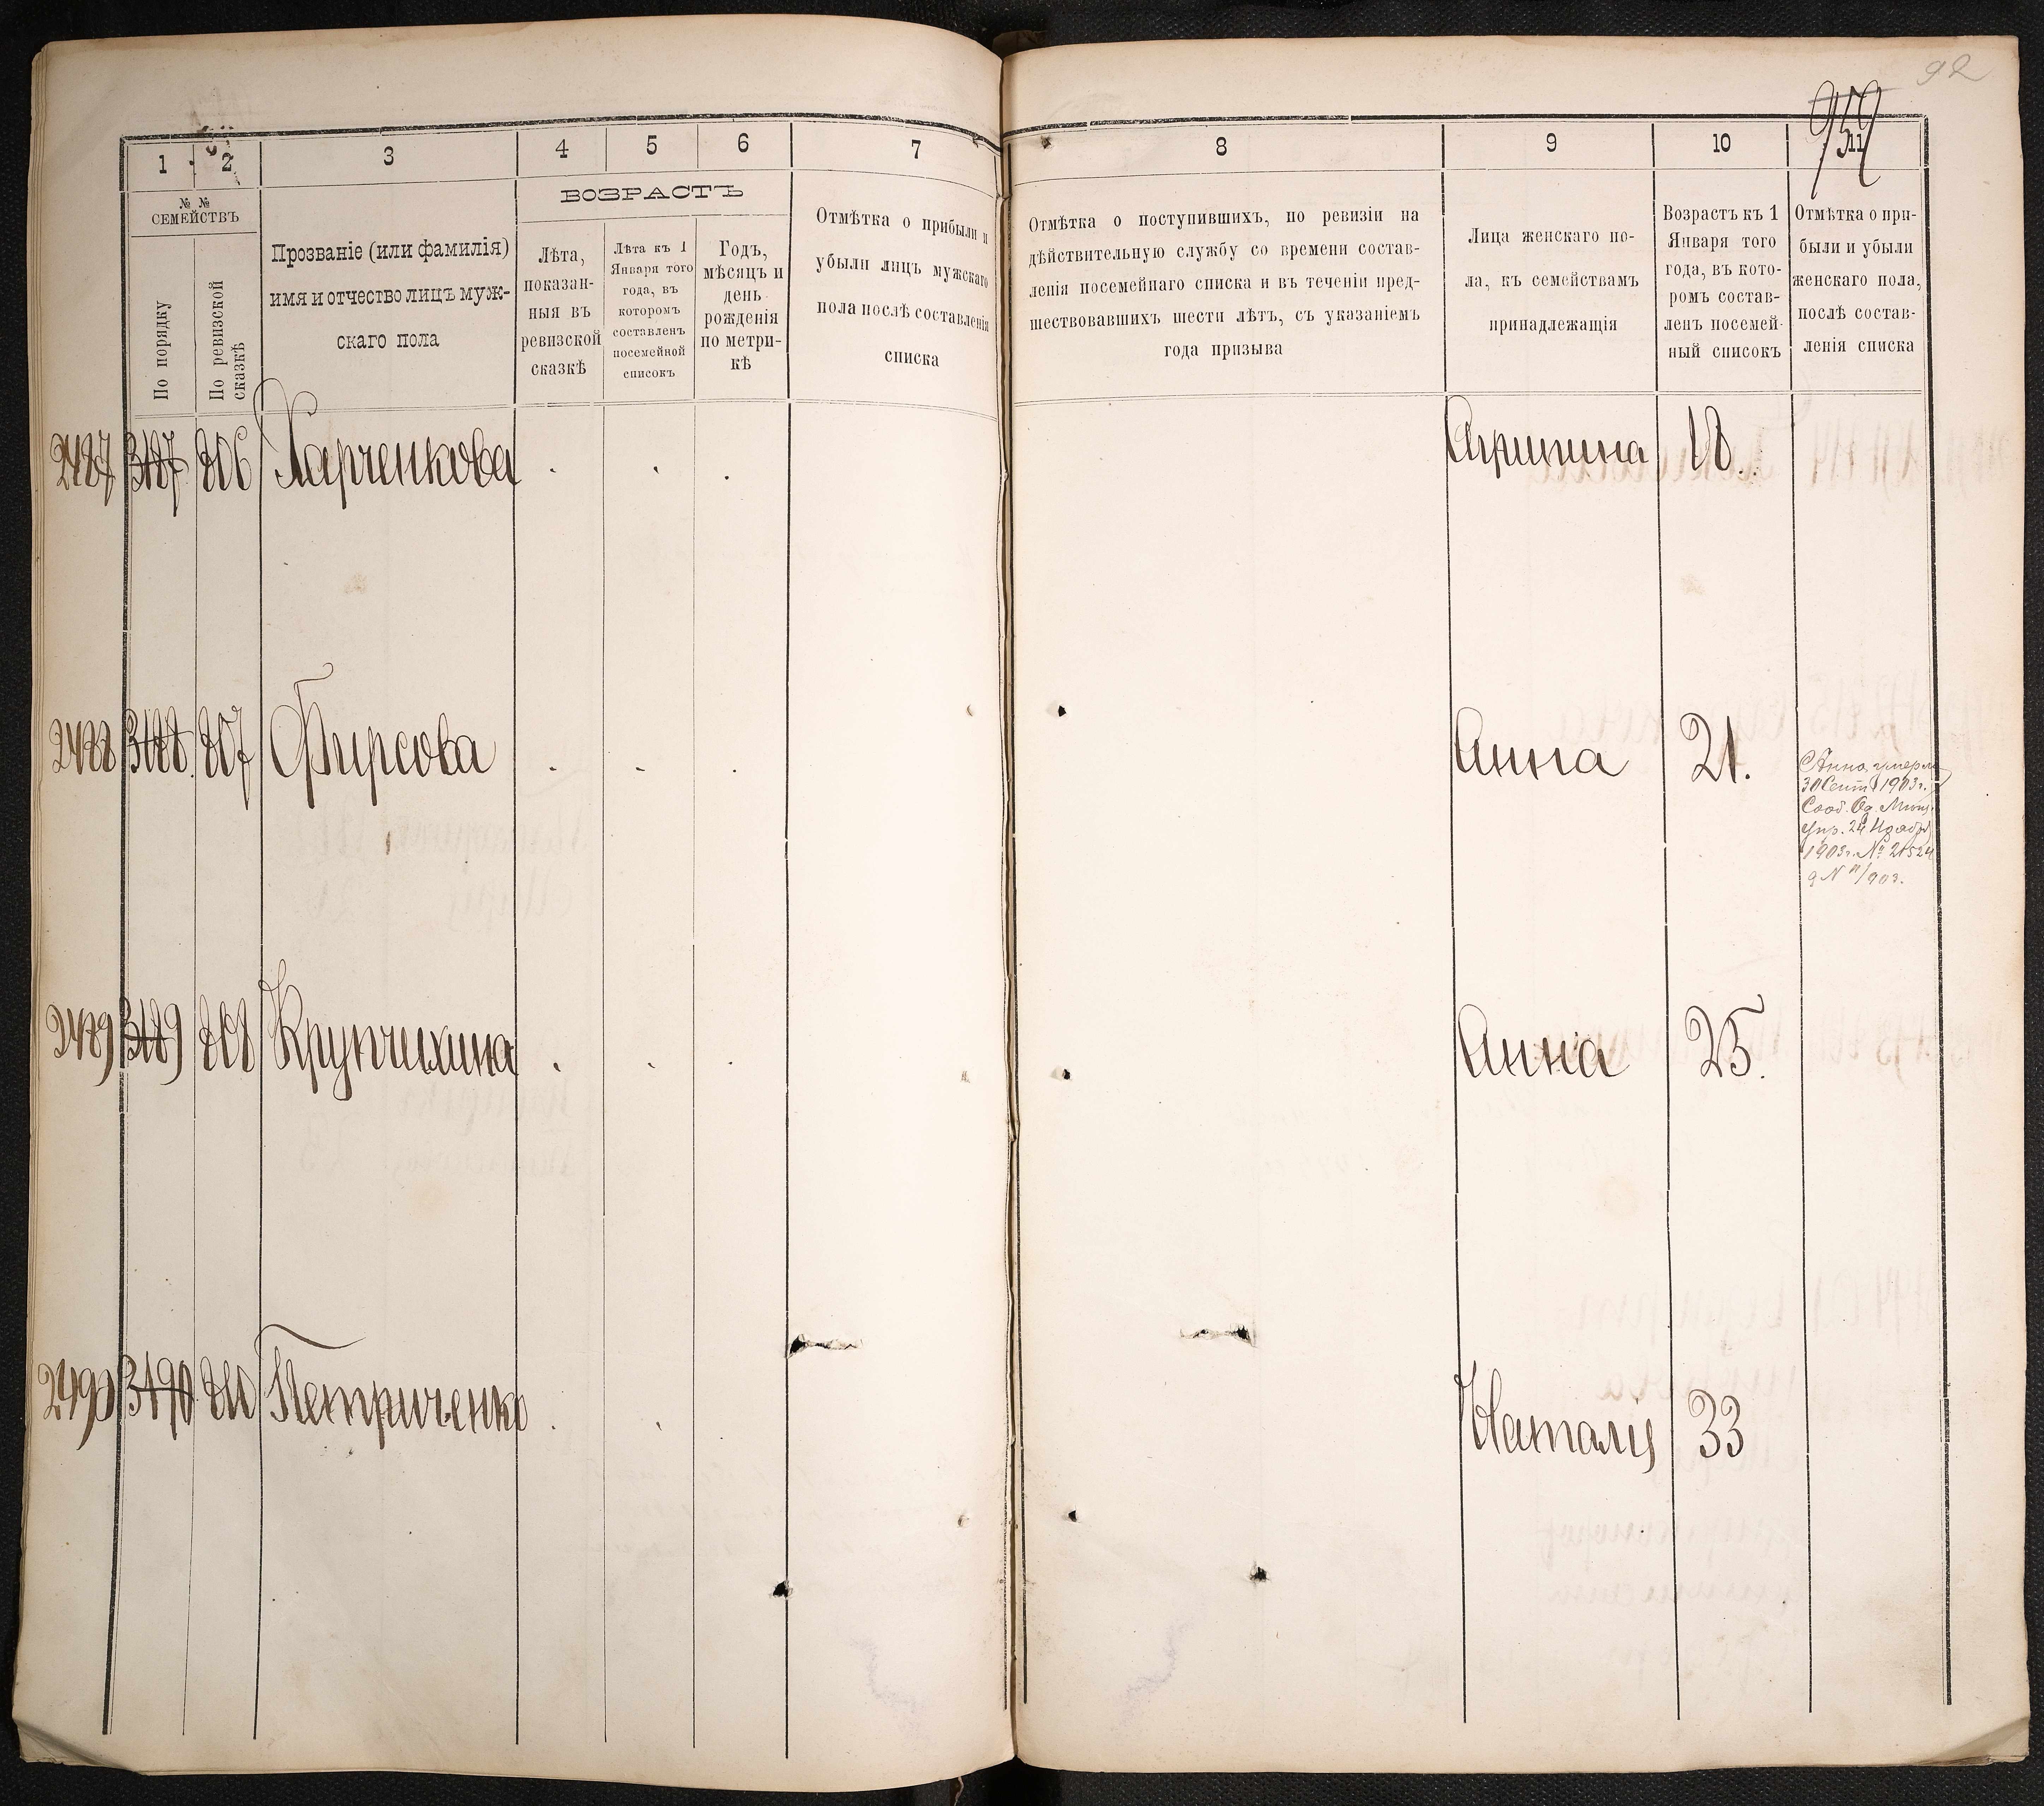 92
959
1 2 3 4 5 6 7 8 9 10 11
№ №
СЕМЕЙСТВЪ
По порядку
По ревизской
сказкѣ
Прозваніе (или фамилія)
имя и отчество лицъ муж-
скаго пола
ВОЗРАСТЪ
Лѣта,
показан-
ныя въ
ревизской
сказкѣ
Лѣта къ 1
Января того
года, въ
которомъ
составленъ
посемейной
списокъ
Годъ,
мѣсяцъ и
день
рожденія
по метри-
кѣ
Отмѣтка о прибыли и
убыли лицъ мужскаго
пола послѣ составленія
списка
Отмѣтка о поступившихъ, по ревизіи на
дѣйствительную службу со времени состав-
ленія посемейнаго списка и въ теченіи пред-
шествовавшихъ шести лѣтъ, съ указаніемъ
года призыва
Лица женскаго по-
ла, къ семействамъ
принадлежащія
Возрастъ къ 1
Января того
года, въ кото-
ромъ состав-
ленъ посемей-
ный списокъ
Отмѣтка о при-
были и убыли
женскаго пола,
послѣ состав-
ленія списка
2487 3187 806 Харченкова Агрипина 18.
2488 3188 807 Фирсова Анна 21.
Анна умерла
30 Сент. 1903 г.
Сооб. Од. Мѣщ.
Упр. 24 Ноябр
1903 г. № 21524
2489 3189 808 Крупчихина Анна 25.
2490 3190 810 Петриченко Наталія 33